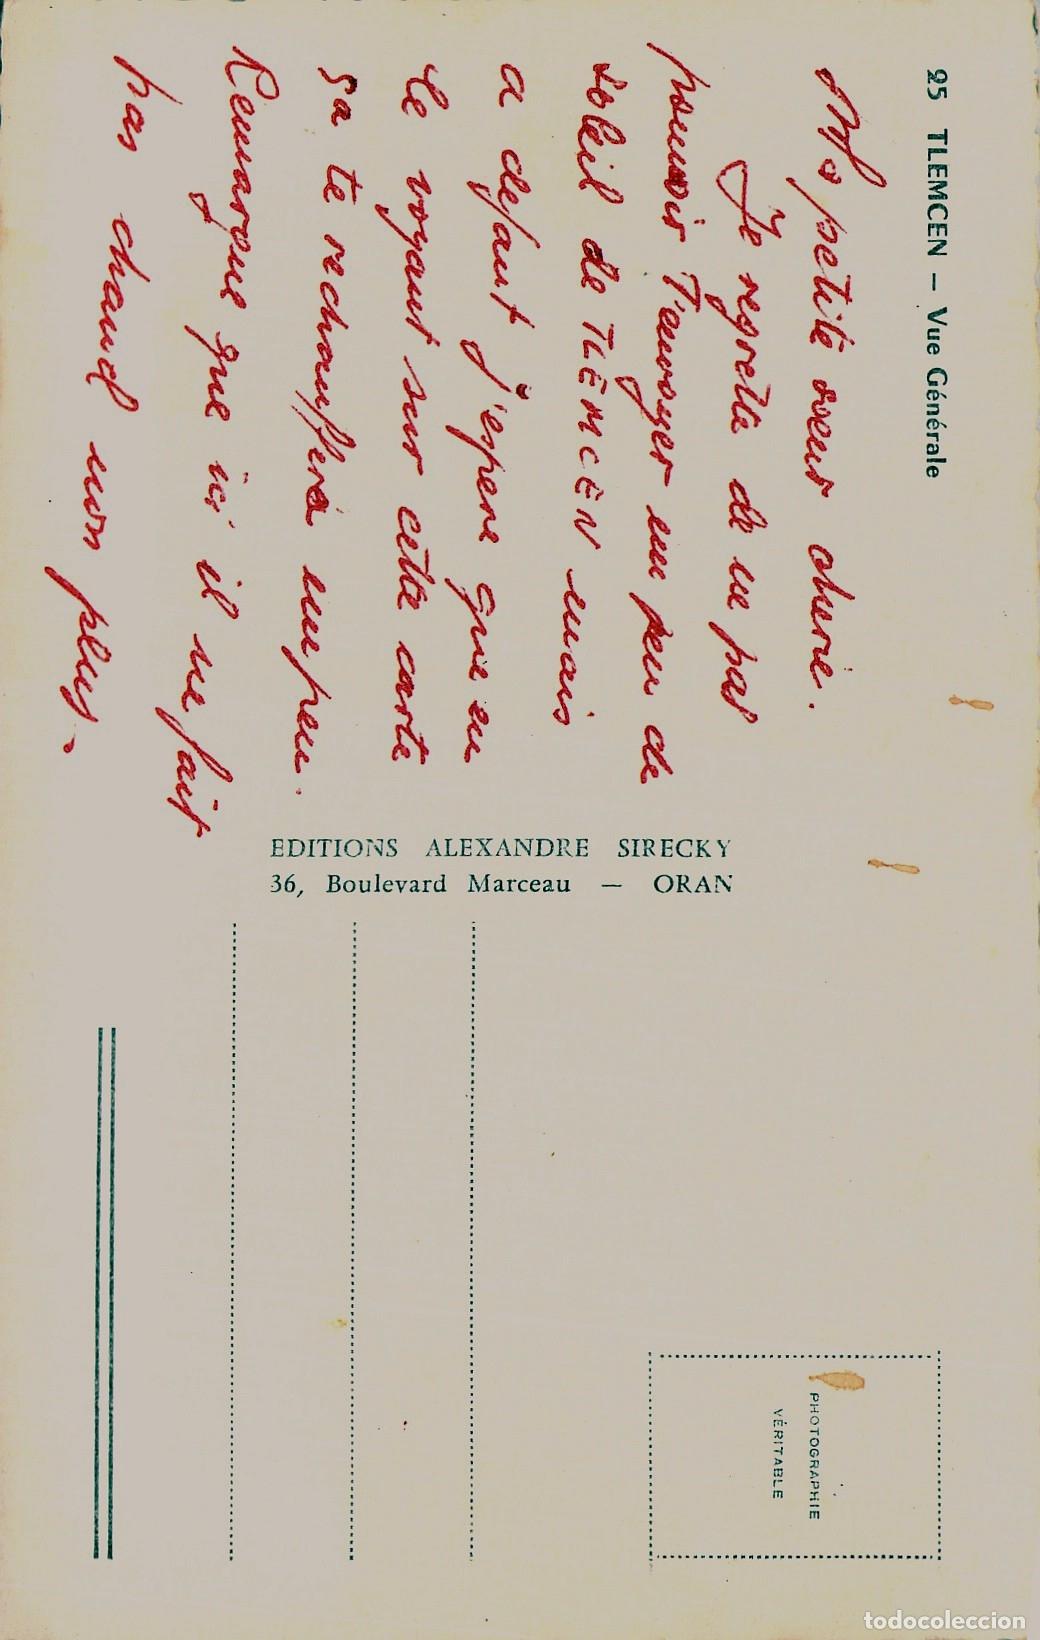 25 TLEMCEN — Vue Générale
Ma petite soeur cherie.
Je regrette de ne pas
pouvoir t'envoyer un peu de
soleil de TLEMCEN mais
a defaut j'espere que en
le voyant sur cette carte
ça te rechauffera un peu.
Remarque que ici il ne fait
pas chaud non plus -
EDITIONS ALEXANDRE SIRECKY
36, Boulevard Marceau — ORAN
PHOTOGRAPHIE
VÉRITABLE
todocoleccion